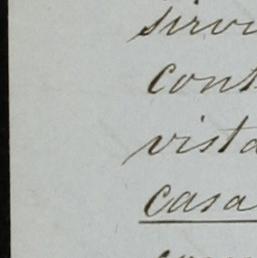 sirvi
cont
vista
casa